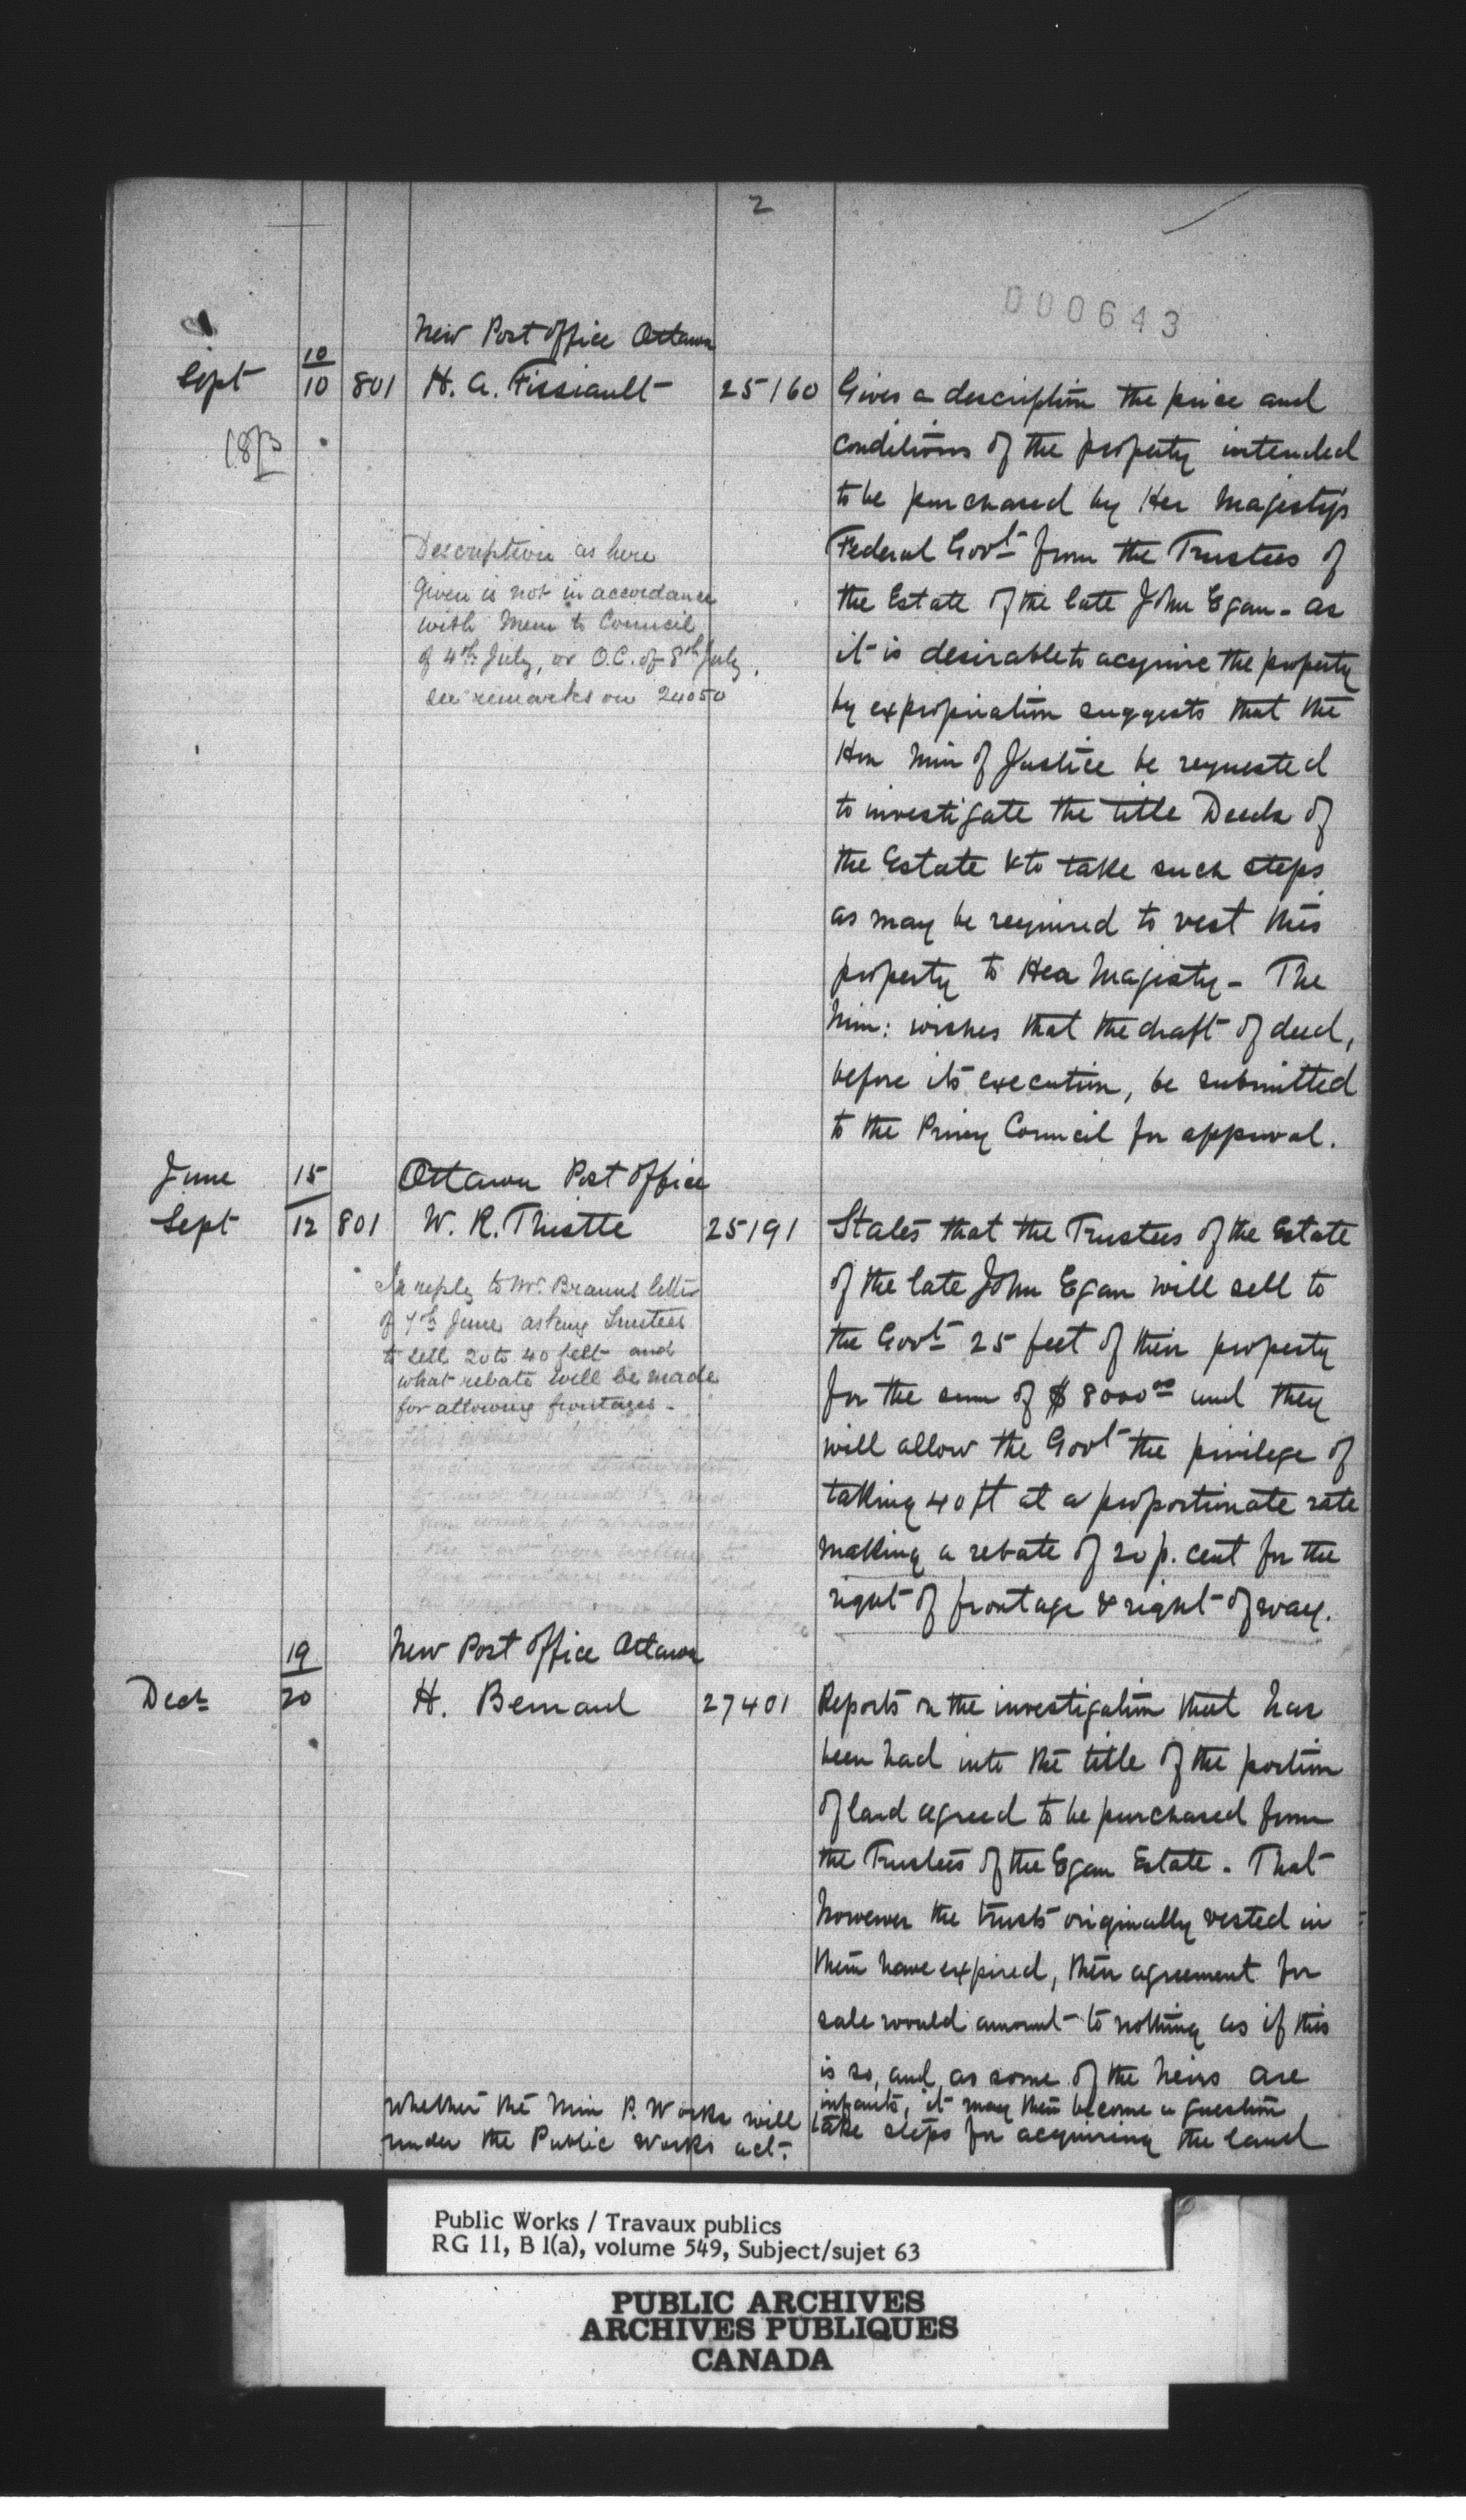 2
000643
New Post Office Ottawa
Sept 10/10 801 H. A. Fissiault 25160 Gives a description the price and
1873
conditions of the property intended
to be purchased by Her Majesty's
Federal Govt from the Trustees of
the Estate of the late John Egan - as
it is desirable to acquire the property
by expropriation suggests that the
Hon Min of Justice be requested
to investigate the title Deeds of
the Estate & to take such steps
as may be required to vest this
property to Her Majesty - The
Min: wishes that the draft of deed,
before its execution, be submitted
to the Privy Council for approval.
Description as here
given is not in accordance
with Mem to Council
of 4th July, or O.C. of 8th July,
see remarks on 24050
June 15 Ottawa Post Office
Sept 12 801 W. R. Thistle 25191 States that the Trustees of the Estate
of the late John Egan will sell to
the Govt 25 feet of their property
for the sum of $8000.00 and they
will allow the Govt the privilege of
taking 40 ft at a proportionate rate
making a rebate of 20 p. cent for the
right of frontage & right of way.
In reply to Mr Brauns letter
of 7th June asking Trustees
to sell 20 to 40 feet and
what rebate will be made
for allowing frontages -
19 New Post Office Ottawa
Decr 20 H. Bernard 27401 Reports on the investigation that has
been had into the title of the portion
of land agreed to be purchased from
the Trustees of the Egan Estate. That
however the trusts originally vested in
them have expired, their agreement for
sale would amount to nothing as if this
is so, and as some of the heirs are
infants, it may then become a question
whether the Min P. Works will take steps for acquiring the land
under the Public Works act.
Public Works / Travaux publics
RG 11, B 1(a), volume 549, Subject/sujet 63
PUBLIC ARCHIVES
ARCHIVES PUBLIQUES
CANADA